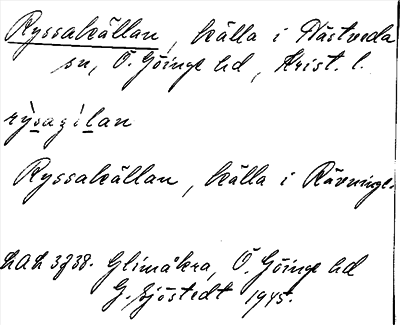 Ryssakällan, källa i Hästveda
sn, Ö. Göinge hd, Krist. l.
rỳsaʒìlan
Ryssakällan, källa i Rävninge.
LAL 3738. Glimåkra, Ö. Göinge hd
G. Sjöstedt 1945.